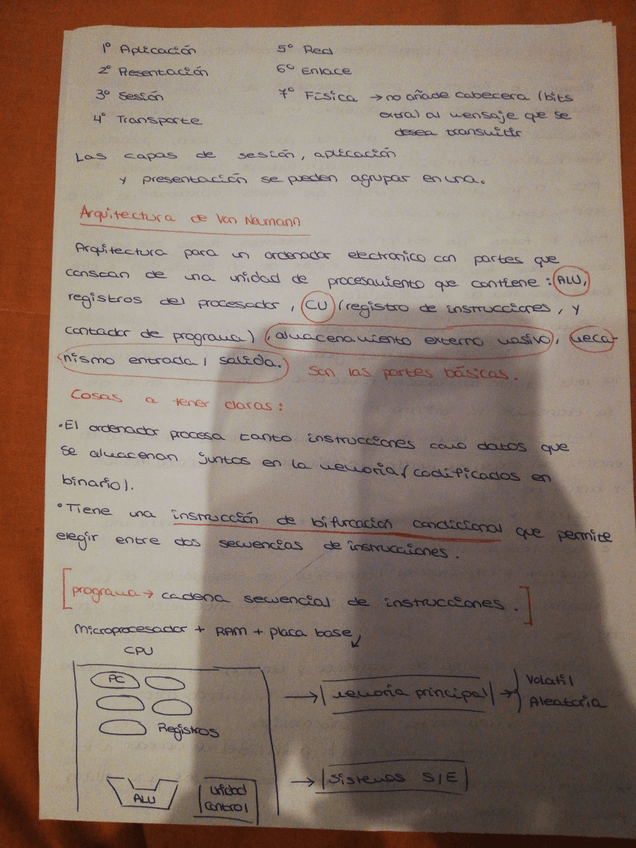 1º Aplicación
2º Presentación
3º Sesión
4º Transporte
5º Red
6º Enlace
7º Física → no añade cabecera (bits
extra) al mensaje que se
desea transmitir
Las capas de sesión, aplicación
y presentación se pueden agrupar en una.
Arquitectura de Von Neumann
Arquitectura para un ordenador electronico con partes que
constan de una unidad de procesamiento que contiene: ALU,
registros del procesador, CU (registro de instrucciones, y
contador de programa), almacenamiento externo masivo, meca-
nismo entrada / salida. Son las partes básicas.
Cosas a tener claras:
·El ordenador procesa tanto instrucciones como datos que
se almacenan juntos en la memoria (codificados en
binario).
·Tiene una instrucción de bifurcación condicional que permite
elegir entre dos secuencias de instrucciones.
[programa → cadena secuencial de instrucciones.]
Microprocesador + RAM + placa base
CPU
PC
Registros
ALU
Unidad
Control
→ memoria principal → Volatil
Aleatoria
→ Sistemas S/E